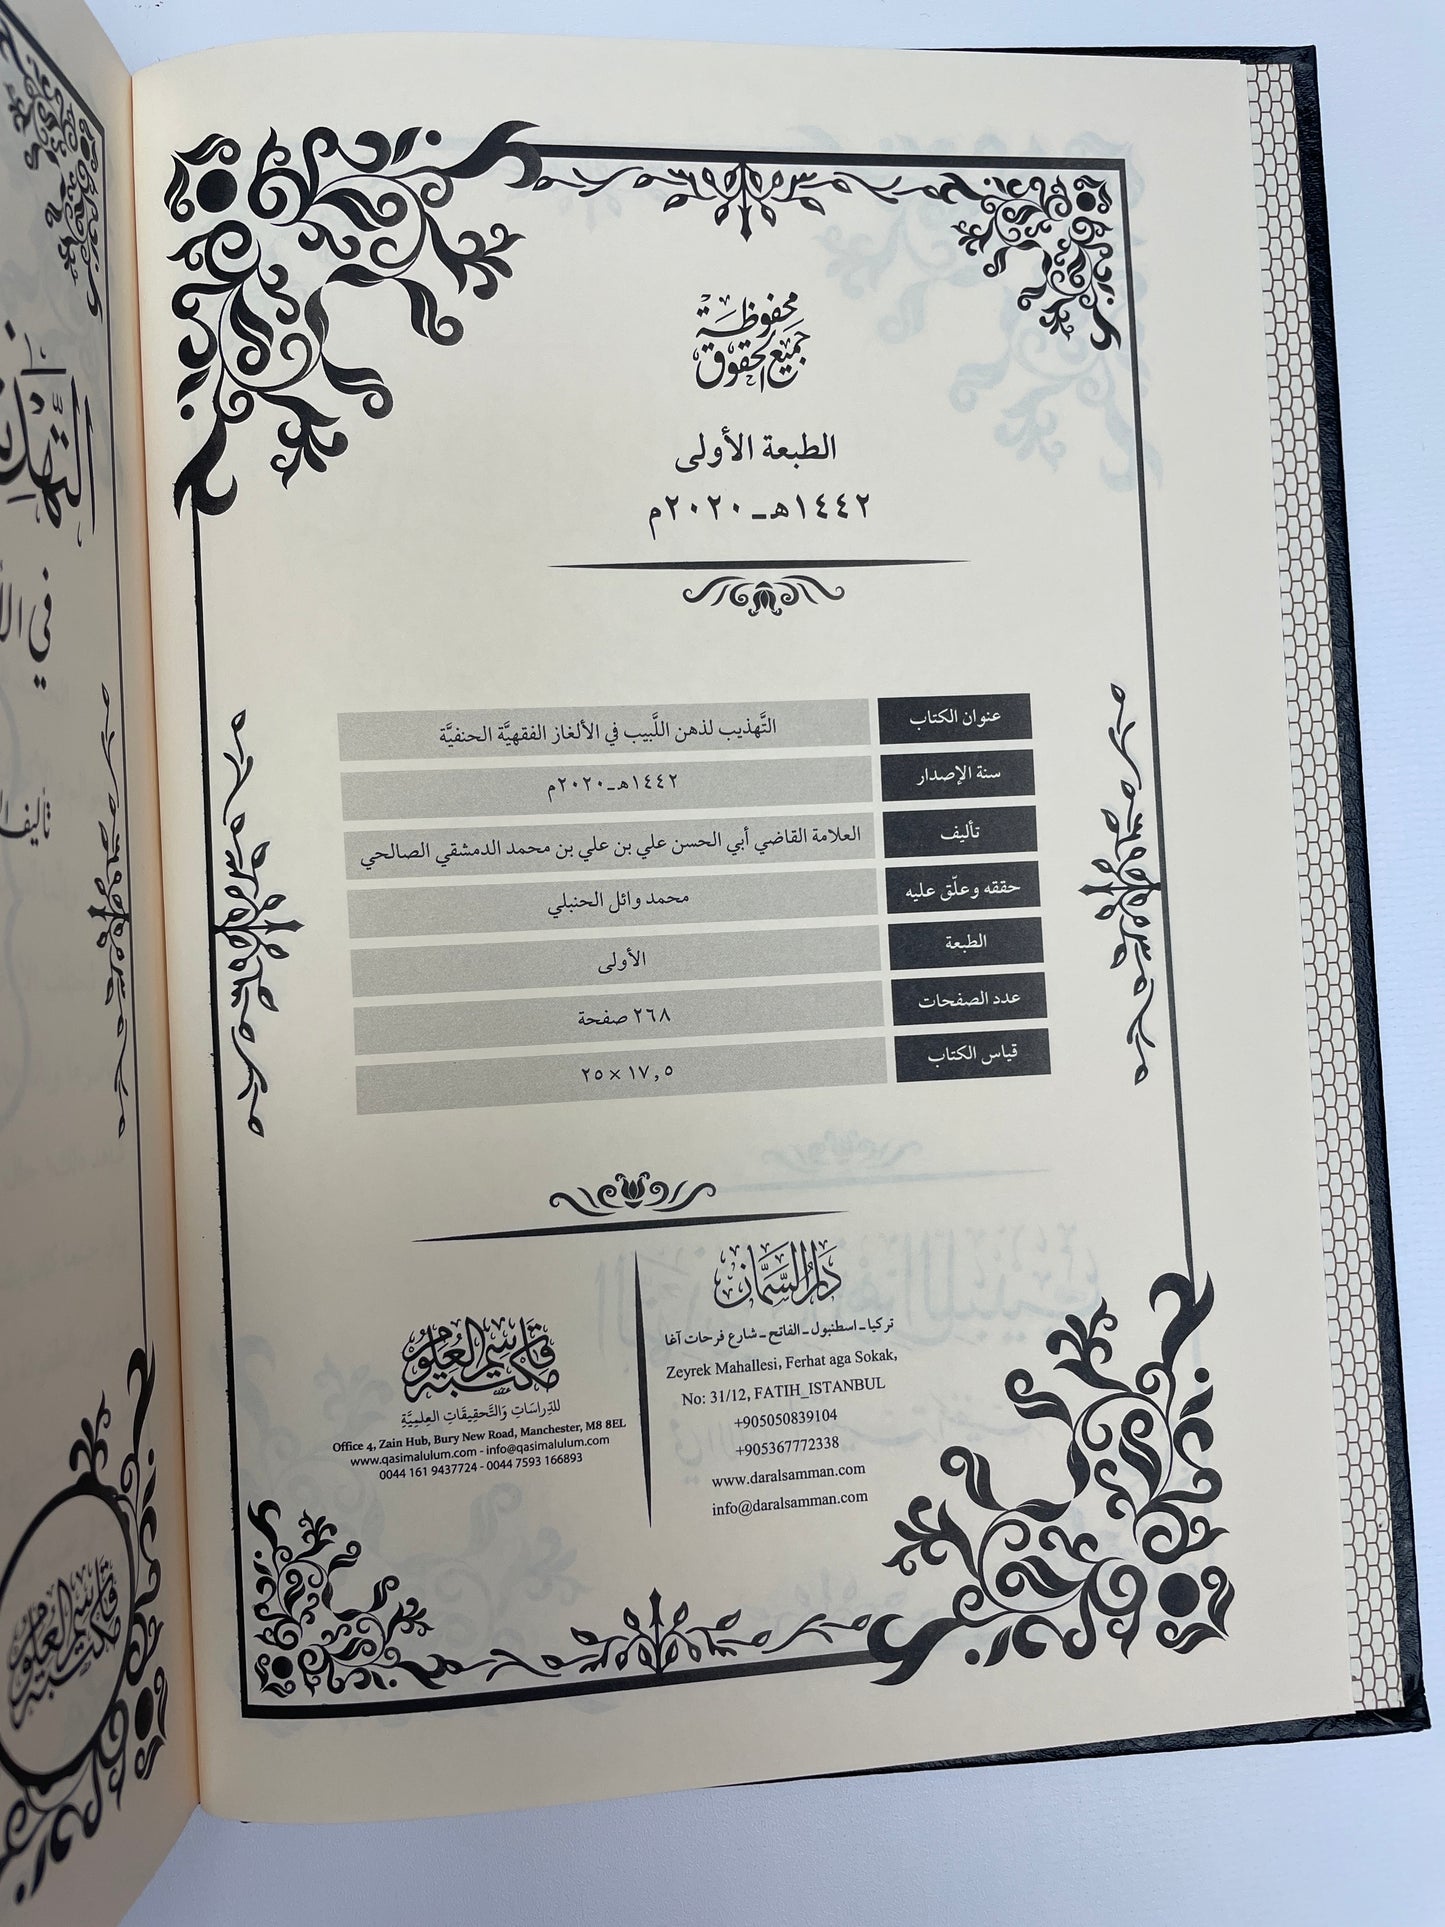 جميع الحقوق محفوظة
الطبعة الأولى
١٤٤٢هـ ـ ٢٠٢٠م
عنوان الكتاب التَّهذيب لذهن اللَّبيب في الألغاز الفقهيَّة الحنفيَّة
سنة الإصدار ١٤٤٢هـ ـ ٢٠٢٠م
تأليف العلامة القاضي أبي الحسن علي بن علي بن محمد الدمشقي الصالحي
حققه وعلّق عليه محمد وائل الحنبلي
الطبعة الأولى
عدد الصفحات ٢٦٨ صفحة
قياس الكتاب ١٧,٥ × ٢٥
دَارُ السَّمَّان
تركيا ـ اسطنبول ـ الفاتح ـ شارع فرحات آغا
Zeyrek Mahallesi, Ferhat aga Sokak,
No: 31/12, FATIH_ISTANBUL
+905050839104
+905367772338
www.daralsamman.com
info@daralsamman.com
مكتبة قاسم العلوم
للدِّرَاسَاتِ وَالتَّحقِيقَاتِ العِلمِيَّةِ
Office 4, Zain Hub, Bury New Road, Manchester, M8 8EL
www.qasimalulum.com - info@qasimalulum.com
0044 161 9437724 - 0044 7593 166893
في
تأليف
قاسم العلوم